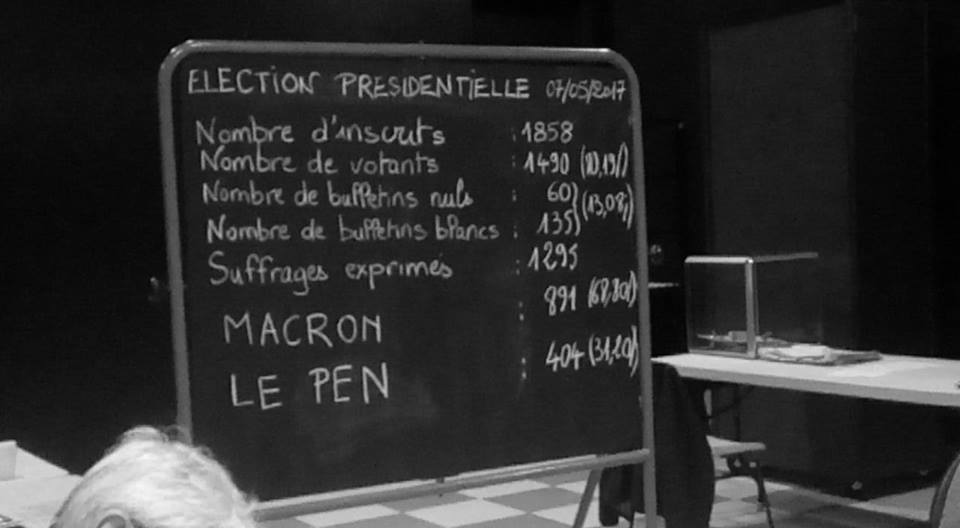 ELECTION PRESIDENTIELLE 07/05/2017
Nombre d'inscrits : 1858
Nombre de votants : 1490 (80,19%)
Nombre de bulletins nuls : 60) (13,08%)
Nombre de bulletins blancs : 135)
Suffrages exprimés : 1295
MACRON : 891 (68,80%)
LE PEN : 404 (31,20%)